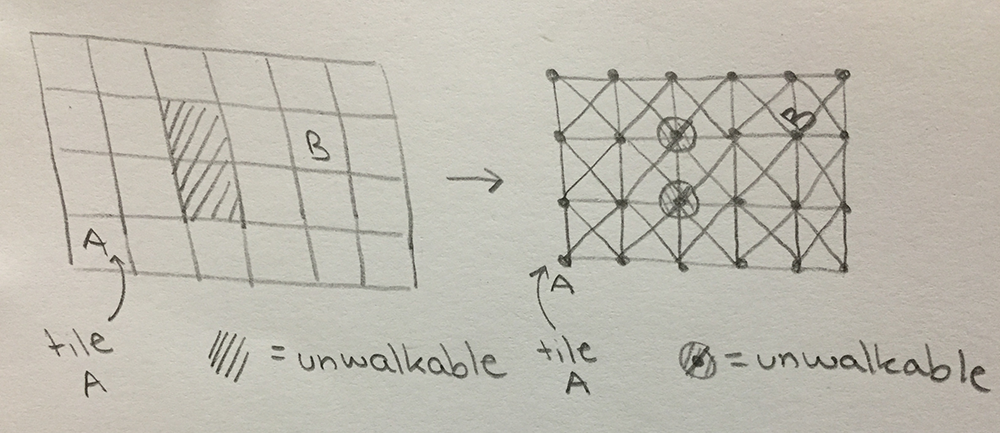 B
B
A
A
tile
A
= unwalkable
tile
A
= unwalkable